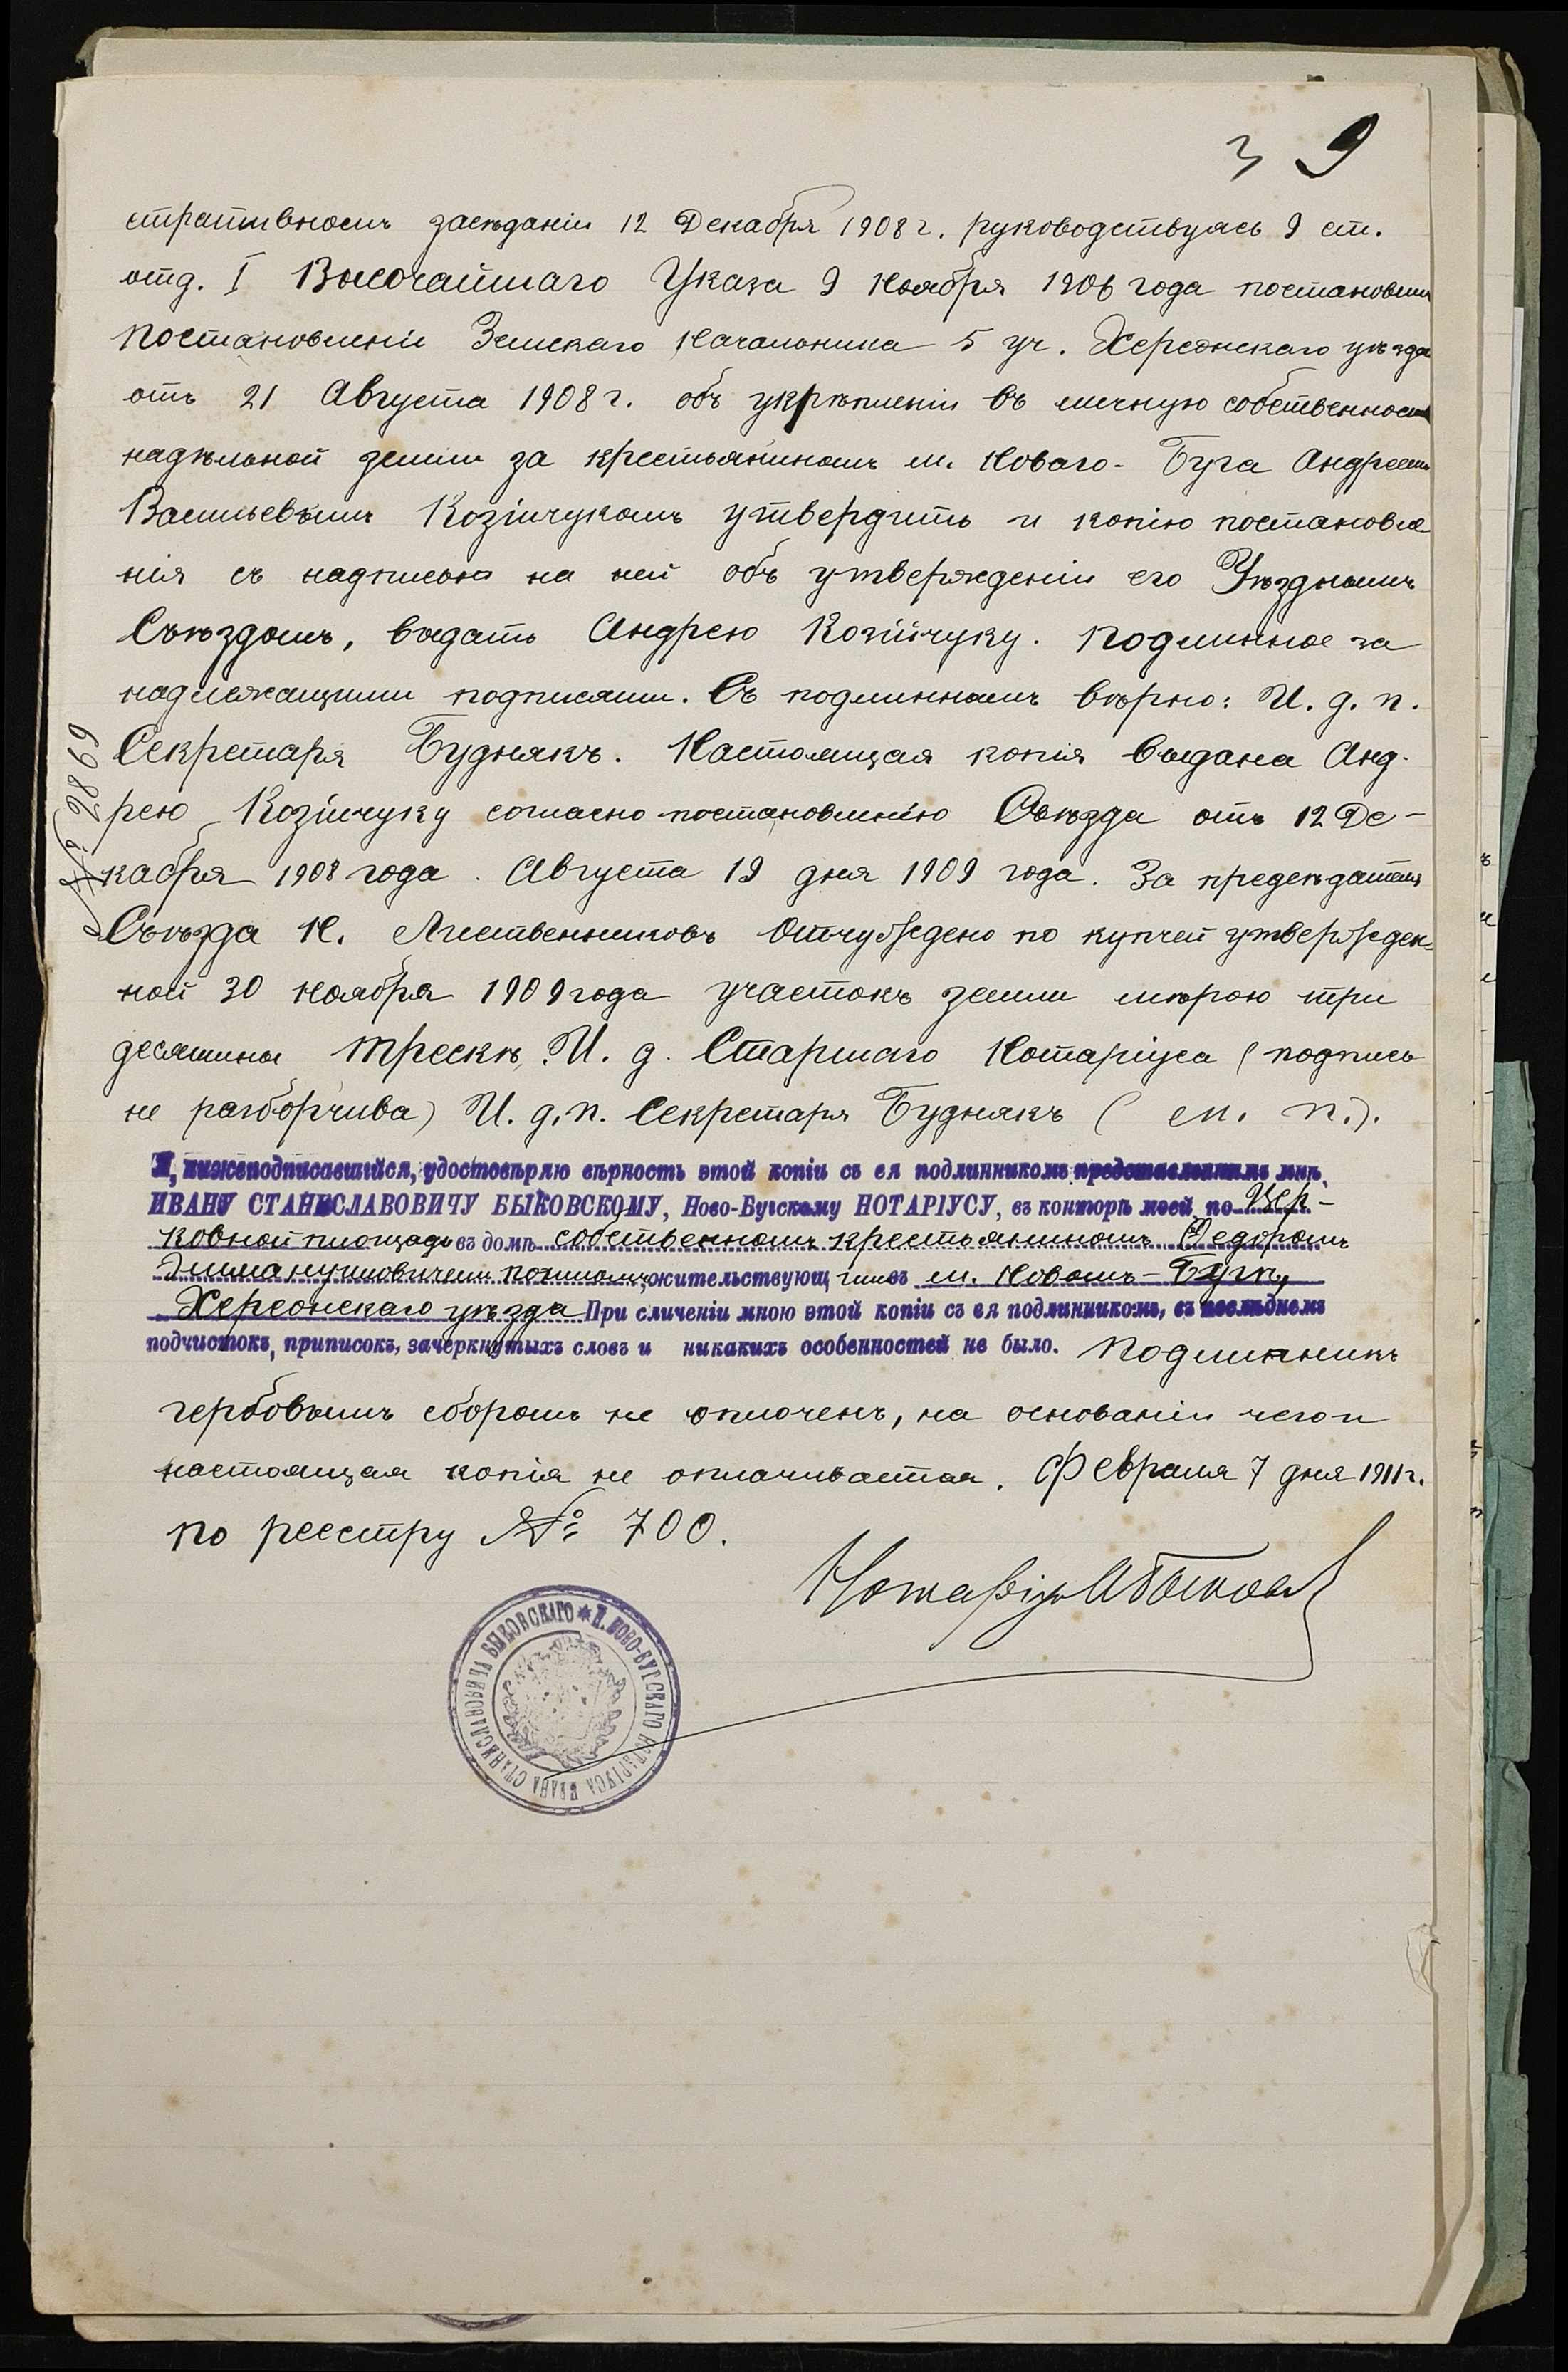 3 9
стративномъ засѣданіи 12 Декабря 1908 г. руководствуясь 9 ст.
отд. I Высочайшаго Указа 9 Ноября 1906 года постановилъ
постановленіе Земскаго Начальника 5 уч. Херсонскаго уѣзда
отъ 21 Августа 1908 г. объ укрѣпленіи въ личную собственность
надѣльной земли за крестьяниномъ м. Новаго-Буга Андреемъ
Васильевымъ Козійчукомъ утвердить и копію постановле
нія съ надписью на ней объ утвержденіи его Уѣзднымъ
Съѣздомъ, выдать Андрею Козійчуку. Подлинное за
надлежащими подписями. Съ подлиннымъ вѣрно: И. д. п.
Секретаря Буднякъ. Настоящая копія выдана Анд-
рею Козійчуку согласно постановленію Съѣзда отъ 12 Де-
кабря 1908 года. Августа 19 дня 1909 года. За предсѣдателя
Съѣзда Н. Лиственниковъ Отчуждено по купчей утвержден-
ной 30 Ноября 1909 года участокъ земли мѣрою три
десятины Трескѣ. И. д. Старшаго Нотаріуса (подпись
не разборчива) И. д. п. Секретаря Буднякъ ( м. п.).
№ 2869
Я, нижеподписавшійся, удостовѣряю вѣрность этой копіи съ ея подлинникомъ представленнымъ мнѣ,
ИВАНУ СТАНИСЛАВОВИЧУ БЫКОВСКОМУ, Ново-Бугскому НОТАРІУСУ, въ конторѣ моей, по Цер-
ковной площади въ домѣ собственномъ крестьяниномъ Федоромъ
жительствующимъ въ м. Новомъ-Бугѣ,
Херсонскаго уѣзда При сличеніи мною этой копіи съ ея подлинникомъ, въ послѣднемъ
подчистокъ, приписокъ, зачеркнутыхъ словъ и никакихъ особенностей не было. Подлинникъ
гербовымъ сборомъ не оплоченъ, на основаніи чего и
настоящая копія не оплачивается. Февраля 7 дня 1911 г.
по реестру № 700.
Нотаріусъ И Быковскій
И. НОВО-БУГСКАГО НОТАРІУСА ИВАНА СТАНИСЛАВОВИЧА БЫКОВСКАГО